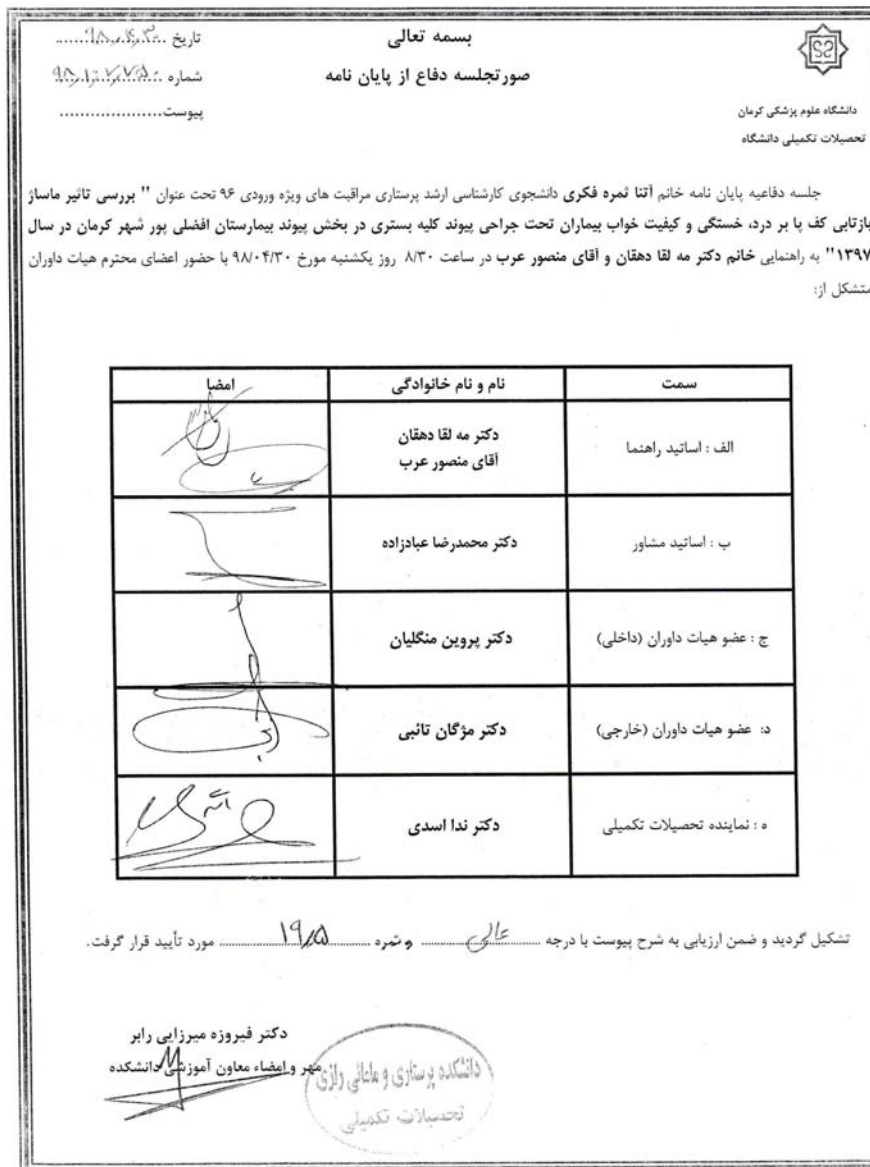 بسمه تعالی
صورتجلسه دفاع از پایان نامه
تاریخ
شماره
پیوست....................
دانشگاه علوم پزشکی کرمان
تحصیلات تکمیلی دانشگاه
جلسه دفاعیه پایان نامه خانم آتنا ثمره فکری دانشجوی کارشناسی ارشد پرستاری مراقبت های ویژه ورودی ۹۶ تحت عنوان " بررسی تاثیر ماساژ
بازتابی کف پا بر درد، خستگی و کیفیت خواب بیماران تحت جراحی پیوند کلیه بستری در بخش پیوند بیمارستان افضلی پور شهر کرمان در سال
۱۳۹۷" به راهنمایی خانم دکتر مه لقا دهقان و آقای منصور عرب در ساعت ۸/۳۰ روز یکشنبه مورخ ۹۸/۰۴/۳۰ با حضور اعضای محترم هیات داوران
متشکل از:
سمت نام و نام خانوادگی امضا
الف : اساتید راهنما دکتر مه لقا دهقان
آقای منصور عرب
ب : اساتید مشاور دکتر محمدرضا عبادزاده
ج : عضو هیات داوران (داخلی) دکتر پروین منگلیان
د: عضو هیات داوران (خارجی) دکتر مژگان تائبی
ه : نماینده تحصیلات تکمیلی دکتر ندا اسدی
تشکیل گردید و ضمن ارزیابی به شرح پیوست با درجه عالی و نمره ۱۹/۵ مورد تأیید قرار گرفت.
دکتر فیروزه میرزایی رابر
مهر و امضاء معاون آموزشی دانشکده
دانشکده پرستاری و مامائی رازی
تحصیلات تکمیلی